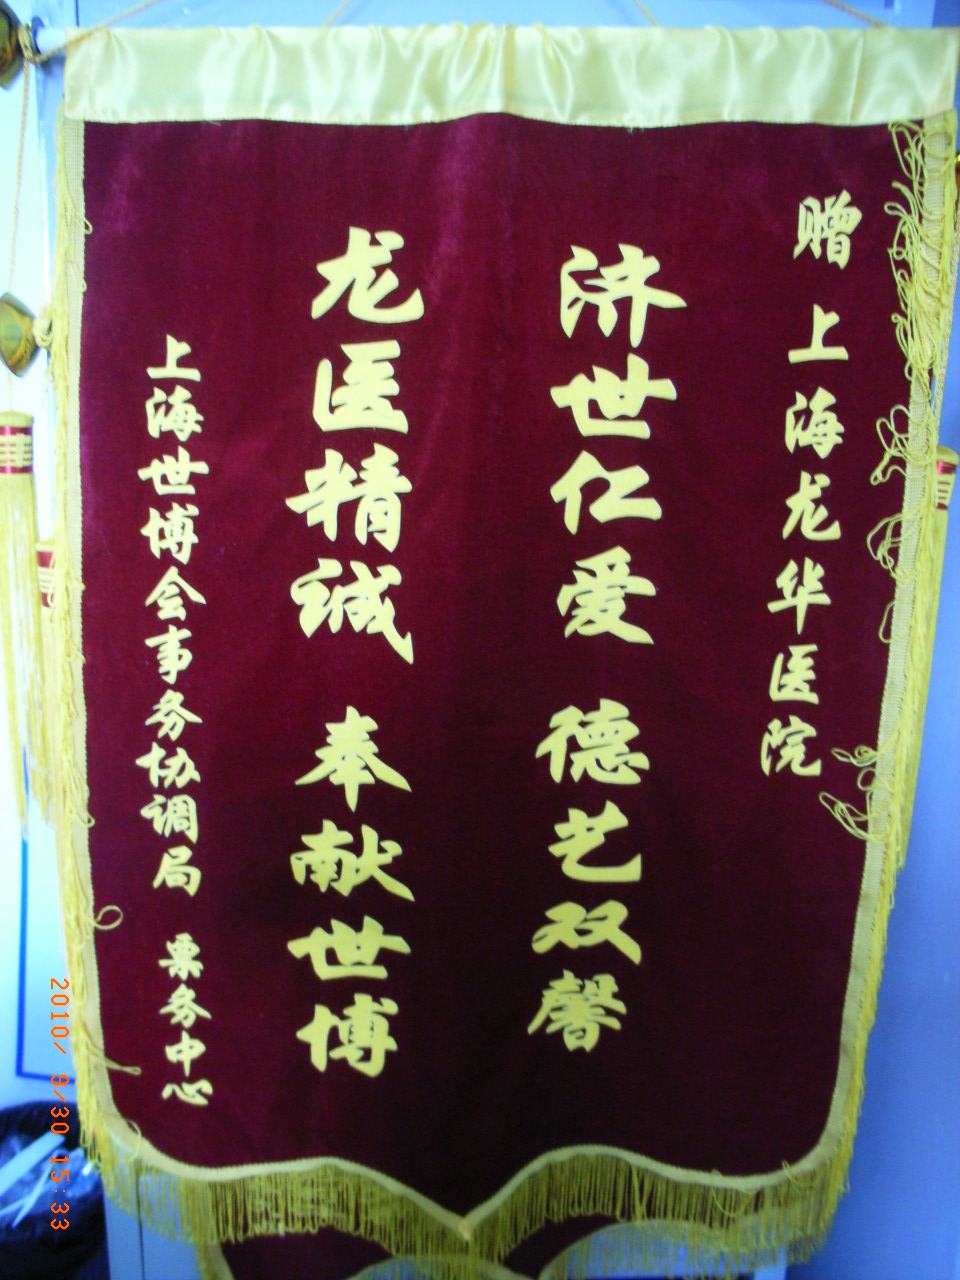 赠 上海龙华医院
济世仁爱 德艺双馨
龙医精诚 奉献世博
上海世博会事务协调局 票务中心
2010/ 9/30 15:33